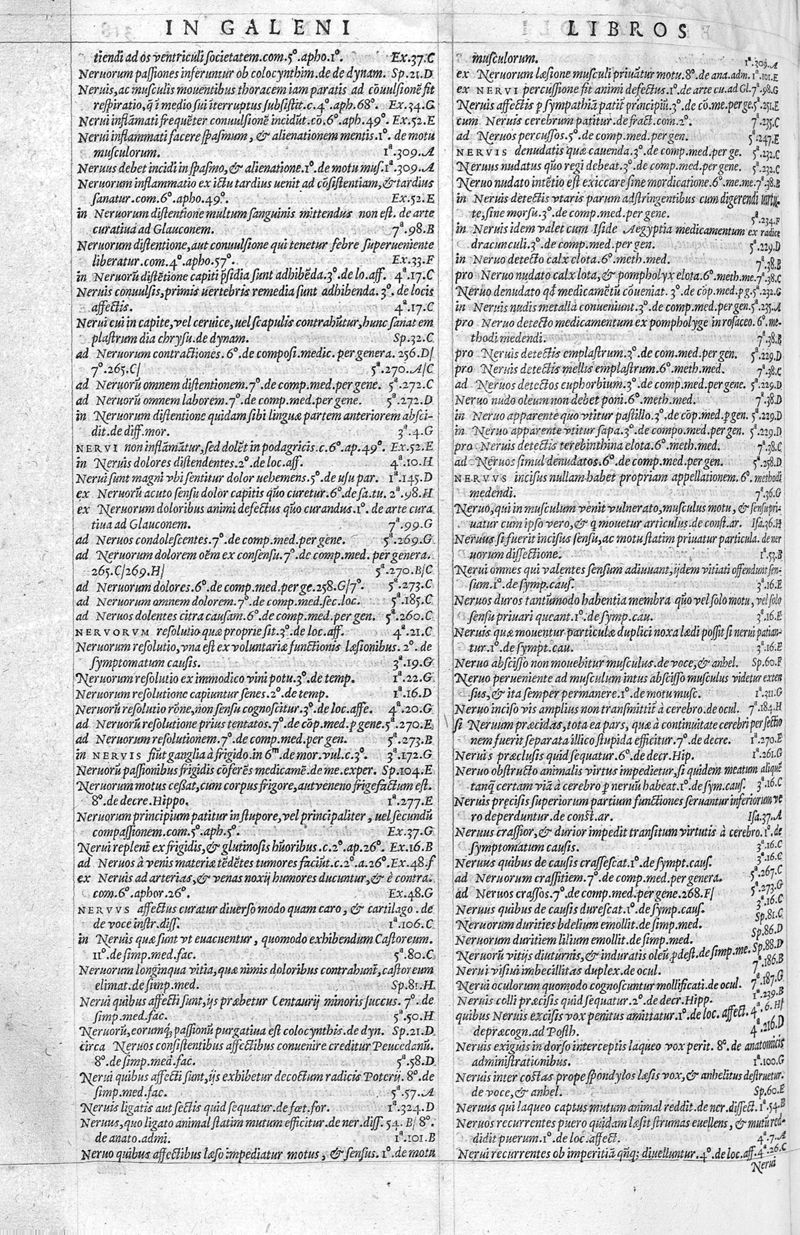 IN GALENI
tiendi ad os ventriculi societatem.com.5º.apho.1º. Ex.37.C
Neruorum passiones inferuntur ob colocynthim.de de dynam. Sp.21.D
Neruis, ac musculis mouentibus thoracem iam paratis ad cōuulsionē fit
respiratio, q̄ i medio sui iterruptus subsistit.c.4º.aph.68º. Ex.34.G
Nerui inflāmati frequēter conuulsionē incidūt.cō.6º.aph.49º. Ex.52.E
Nerui inflammati facere spasmum, & alienationem mentis.1º. de motu
musculorum. 1ª.309.A
Neruus debet incidi in spasmo, & alienatione.1º.de motu mus.1ª.309.A
Neruorum inflammatio ex ictu tardius uenit ad cōsistentiam, & tardius
sanatur.com.6º.apho.49º. Ex.52.E
in Neruorum distentione multum sanguinis mittendus non est. de arte
curatiua ad Glauconem. 7ª.98.B
Neruorum distentione, aut conuulsione qui tenetur febre superueniente
liberatur.com.4º.apho.57º. Ex.33.F
in Neruorū distētione capiti p̄sidia sunt adhibēda.3º.de lo.aff. 4ª.17.C
Neruis conuulsis, primis uertebris remedia sunt adhibenda. 3º. de locis
affectis. 4ª.17.C
Nerui cui in capite, vel ceruice, uel scapulis contrahūtur, hunc sanat em
plastrum dia chrysu.de dynam. Sp.32.C
ad Neruorum contractiones. 6º.de composi.medic.per genera. 256.D/
7º.265.C/ 5ª.270.A/C
ad Neruorū omnem distentionem.7º.de comp.med.per gene. 5ª.272.C
ad Neruorū omnem laborem.7º.de comp.med.per gene. 5ª.272.D
in Neruorum distentione quidam sibi linguæ partem anteriorem absci-
dit.de diff.mor. 3ª.4.G
NERVI non inflāmātur, sed dolēt in podagricis.c.6º.ap.49º. Ex.52.E
in Neruis dolores distendentes.2º.de loc.aff. 4ª.10.H
Nerui sunt magni vbi sentitur dolor uehemens.5º.de usu par. 1ª.145.D
ex Neruorū acuto sensu dolor capitis quō curetur.6º.de sa.tu. 2ª.98.H
ex Neruorum doloribus animi defectus quō curandus.1º. de arte cura
tiua ad Glauconem. 7ª.99.G
ad Neruos condolescentes.7º.de comp.med.per gene. 5ª.269.G
ad Neruorum dolorem oēm ex consensu.7º.de comp.med.per genera.
265.C/269.H/ 5ª.270.B/C
ad Neruorum dolores.6º.de comp.med.per ge.258.G/7º. 5ª.273.C
ad Neruorum amnem dolorem.7º.de comp.med.sec.loc. 5ª.185.C
ad Neruos dolentes citra causam.6º.de comp.med.per gen. 5ª.260.C
NERVORVM resolutio quæ proprie sit.3º.de loc.aff. 4ª.21.C
Neruorum resolutio, vna est ex voluntariæ functionis læsionibus. 2º.de
symptomatum causis. 3ª.19.G
Neruorum resolutio ex immodico vini potu.3º.de temp. 1ª.22.G
Neruorum resolutione capiuntur senes.2º.de temp. 1ª.16.D
Neruorū resolutio rōne, non sensu cognoscitur.3º.de loc.affe. 4ª.20.G
ad Neruorū resolutione prius tentatos.7º.de cōp.med.p gene.5ª.270.E
ad Neruorum resolutionem.7º.de comp.med.per gen. 5ª.273.B
in NERVIS fiūt ganglia à frigido.in 6m.de mor.vul.c.3º. 3ª.172.G
Neruorū passionibus frigidis cōferēs medicamē.de me.exper. Sp.104.E
Neruorum motus cessat, cum corpus frigore, aut veneno frigefactum est.
8º.de decre.Hippo. 1ª.277.E
Neruorum principium patitur in stupore, vel principaliter, uel secundū
compassionem.com.5º.aph.5º. Ex.37.G
Nerui replenī ex frigidis, & glutinosis hūoribus.c.2º.ap.26º. Ex.16.B
ad Neruos à venis materia tēdētes tumores faciūt.c.2º.a.26º.Ex.48.f
ex Neruis ad arterias, & venas noxij humores ducuntur, & è contra.
com.6º.aphor.26º. Ex.48.G
NERVVS affectus curatur diuerso modo quam caro, & cartilago. de
de voce instr.diff. 1ª.106.C
in Neruis quæ sunt vt euacuentur, quomodo exhibendum Castoreum.
11º.de simp.med.fac. 5ª.80.C
Neruorum longinqua vitia, quæ nimis doloribus contrahunī, castoreum
elimat.de simp.med. Sp.81.H
Nerui quibus affecti sunt, ijs præbetur Centaurij minoris succus. 7º.de
simp.med.fac. 5ª.50.H
Neruorū, eorumq; passionū purgatiua est colocynthis.de dyn. Sp.21.D
circa Neruos consistentibus affectibus conuenire creditur Peucedanū.
8º.de simp.med.fac. 5ª.58.D
Nerui quibus affecti sunt, ijs exhibetur decoctum radicis Poterij. 8º.de
simp.med.fac. 5ª.57.A
Neruis ligatis aut sectis quid sequatur.de fœt.for. 1ª.324.D
Neruus, quo ligato animal statim mutum efficitur.de ner.diss. 54.B/ 8º.
de anato.admi. 1ª.101.B
Neruo quibus affectibus læso impediatur motus, & sensus. 1º.de motu
LIBROS
musculorum. 1ª.309.A
ex Neruorum læsione musculi priuātur motu. 8º.de ana.adm. 1ª.101.E
ex NERVI percussione fit animi defectus.1º.de arte cu.ad Gl.7ª.98.G
Neruis affectis p sympathiā patiī principiū.3º.de cō.me.per ge.5ª.231.E
cum Neruis cerebrum patitur.de fract.com.2º. 7ª.235.C
ad Neruos percussos.5º.de comp.med.per gen. 5ª.247.E
NERVIS denudatis quæ cauenda.3º.de comp.med.per ge. 5ª.232.C
Neruus nudatus quo regi debeat.3º.de comp.med.per gene. 5ª.232.C
Neruo nudato intētio est exiccare sine mordicatione.6º.me.me.7ª.38.B
in Neruis detectis vtaris parum adstringentibus cum digerendi
te, sine morsu.3º.de comp.med.per gene. 5ª.234.F
in Neruis idem valet cum Iside Aegyptia medicamentum ex radice
dracunculi.3º.de comp.med.per gen. 5ª.229.D
in Neruo detecto calx elota.6º.meth.me. 7ª.38.B
pro Neruo nudato calx lota, & pompholyx elota.6º.meth.me.7ª.38.C
Neruo denudato qđ medicamētū cōueniat. 3º.de cōp.med.pg.5ª.232.G
in Neruis nudis metalla conueniunt.3º.de comp.med.per gen.5ª.235.A
pro Neruo detecto medicamentum ex pompholyge in rosaceo. 6º.me-
thodi medendi. 7ª.38.B
pro Neruis detectis emplastrum.3º.de com.med.per gen. 5ª.229.D
pro Neruis detectis mellis emplastrum.6º.meth.med. 7ª.38.C
ad Neruos detectos euphorbium.3º.de comp.med.per gene. 5ª.229.D
Neruo nudo oleum non debet poni.6º.meth.med. 7ª.38.D
in Neruo apparente quo vtitur pastillo.3º.de cōp.med.pgen. 5ª.229.D
in Neruo apparente vtitur sapa.3º.de compo.med.per gen. 5ª.229.D
pro Neruis detectis terebinthina elota.6º.meth.med. 7ª.38.C
ad Neruos simul denudatos.6º.de comp.med.per gen. 5ª.258.D
NERVVS incisus nullam habet propriam appellationem.6º. methodi
medendi. 7ª.36.G
Neruo, qui in musculum venit vulnerato, musculus motu, & sensu pri-
uatur cum ipso vero, & q mouetur articulus.de const.ar. Isa.36.H
Neruus si fuerit incisus sensu, ac motu statim priuatur particula. de ner
uorum dissectione. 1ª.53.B
Nerui omnes qui valentes sensum adiuuant, ijdem vitiati offendunt sen-
sum.1º.de symp.caus. 3ª.16.E
Neruos duros tantūmodo habentia membra quō vel solo motu, vel solo
sensu priuari queant.1º.de symp.cau. 3ª.16.E
Neruis quæ mouentur particulæ duplici noxa lædi possit si nerui patian-
tur.1º.de sympt.cau. 3ª.16.E
Neruo abscisso non mouebitur musculus.de voce, & anhel. Sp.60.F
Neruo perueniente ad musculum intus abscisso musculus videtur exten
sus, & ita semper permanere.1º.de motu musc. 1ª.311.G
Neruo inciso vis amplius non transmittiī à cerebro.de ocul. 7ª.184.H
si Neruum præcidas, tota ea pars, quæ à continuitate cerebri per sectio
nem fuerit separata illico stupida efficitur.7º.de decre. 1ª.270.E
Neruis præclusis quid sequatur.6º.de decr.Hip. 1ª.261.G
Neruo obstructo animalis virtus impedietur, si quidem meatum aliquē
tanq; certam viā à cerebro p neruū habeat.1º.de sym.caus. 3ª.16.C
Neruis præcisis superiorum partium functiones seruantur inferiorum ve
ro deperduntur.de const.ar. Isa.37.A
Neruus crassior, & durior impedit transitum virtutis à cerebro.1º.de
symptomatum causis. 3ª.16.C
Neruus quibus de causis crassescat.1º.de sympt.caus. 3ª.16.C
ad Neruorum crassitiem.7º.de comp.med.per genera. 5ª.267.C
ad Neruos crassos.7º.de comp.med.per gene.268.F/ 5ª.273.G
Neruus quibus de causis durescat.1º.de symp.caus. 3ª.16.C
Neruorum durities bdelium emollit.de simp.med. Sp.81.C
Neruorum duritiem lilium emollit.de simp.med. Sp.86.D
Neruorū vitijs diuturnis, & induratis oleū pdest.de simp.me. Sp.88.D
Nerui visiui imbecillitas duplex.de ocul. 7ª.186.B
Nerui oculorum quomodo cognoscuntur mollificati.de ocul. 7ª.187.G
Neruis colli præcisis quid sequatur.2º.de decr.Hipp. 1ª.239.B
quibus Neruis excisis vox penitus amittatur.1º.de loc.affect. 4ª.6.H/
de præcogn.ad Posth. 4ª.216.D
Neruis exiguis in dorso interceptis laqueo vox perit. 8º.de anatomicis
administrationibus. 1ª.100.G
Neruis inter costas prope spondylos læsis vox, & anhelitus destruetur.
de voce, & anhel. Sp.60.E
Neruus qui laqueo captus mutum animal reddit.de ner.dissect.1ª.54.B
Neruos recurrentes puero quidam læsit strumas euellens, & mutū red-
didit puerum.1º.de loc.affect. 4ª.7.A
Nerui recurrentes ob imperitiā qñq; diuelluntur.4º.de loc.aff.4ª.26.C
Nerui